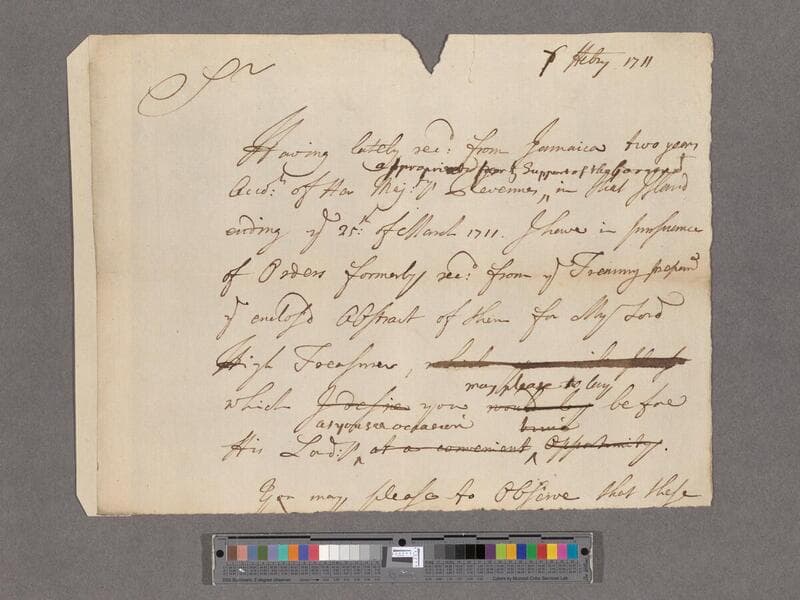 Febry 1711
Sr
Having lately recd: from Jamaica two years
appropriated for ye Support of the Governmt
Accots: of Her Majtys Revenues ^ in that Island
ending ye 25th: of March 1711. I have in pursuance
of Orders formerly recd: from ye Treasury prepard
ye enclos'd Abstract of them for My Lord
High Treasurer, which
may please to lay
which I desire you would lay before
as you see occasion
His Lordp ^ at a convenient ^ Opportunity.
You may please to Observe that these